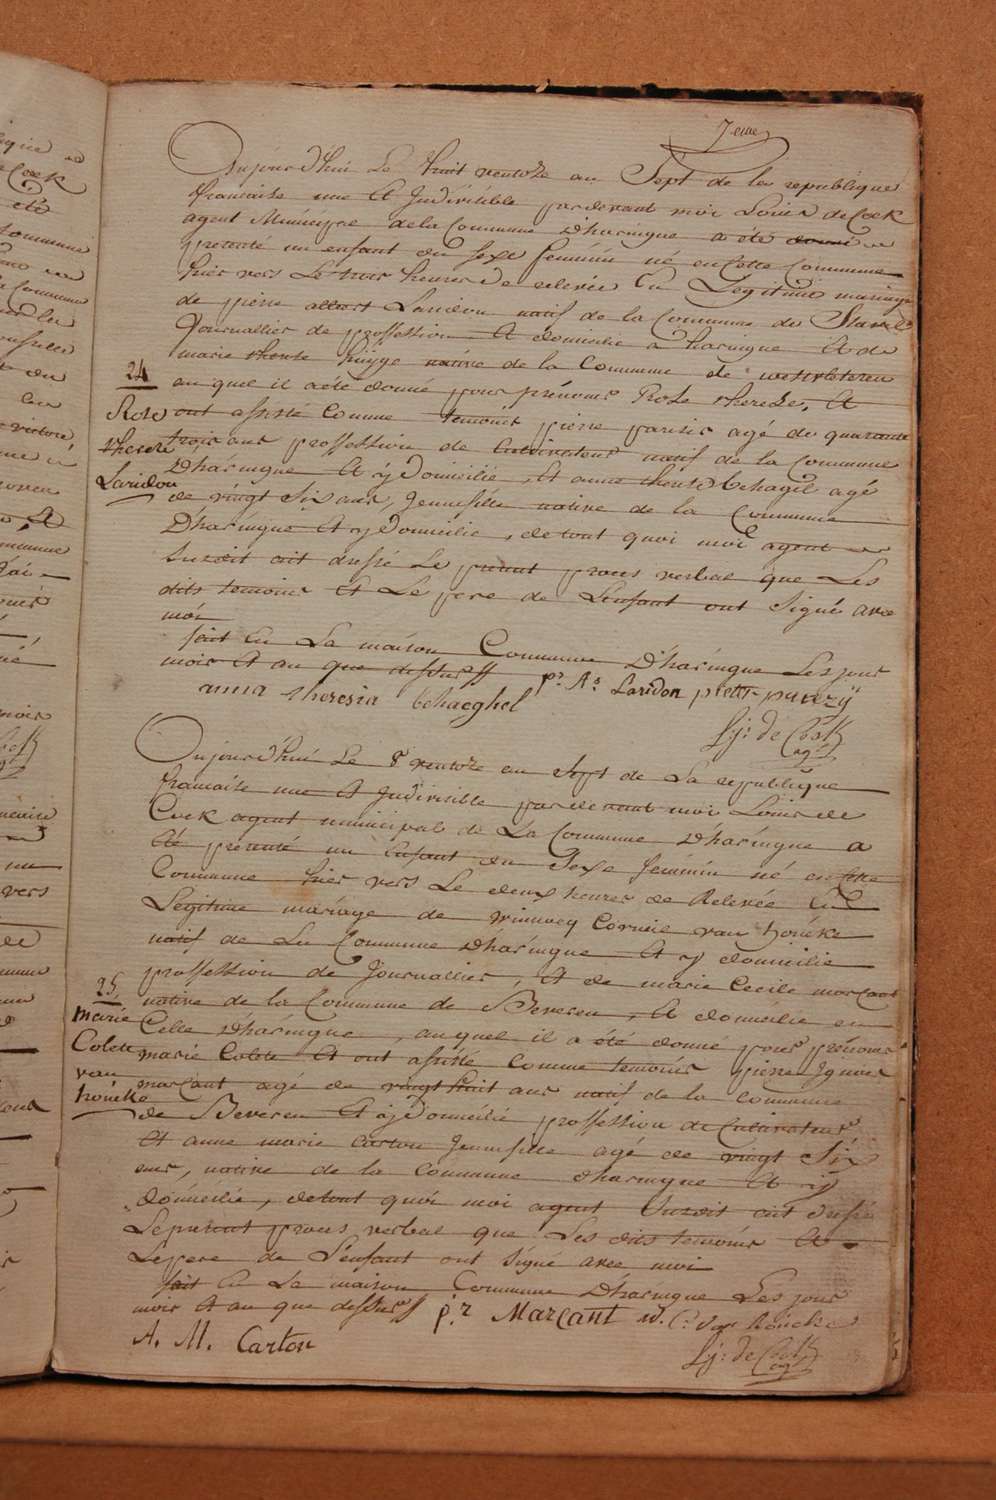 7eme
Aujourd'hui Le huit ventose an Sept de la republique
francaise une Et Indivisible pardevant moi Louis de Coek
agent Municipe dela Commune D'haringue a été donné
presenté un enfant du sexe feminin né en Cette Commune
hier vers Le trois heures de relevée En Legitime mariage
de pierre albert Laridon natif de la Commune de Stavele
Journallier de proffession Et domicilie a haringue Et de
marie therese huyge native de la Commune de westvleteren
au quel il aété donné pour prénoms Rose therese, Et
24
Rose
therese
Laridon
ont assisté Comme temoins pierre parisis agé de quarante
trois ans proffession de Cultivateur natif de la Commune
D'haringue Et ÿ Domicilié, Et anne therese behagil agé
de vingt Six ans, Jeunefille native de la Commune
D'haringue Et ÿ Domicilié, de tout quoi moi agent
Susdit ait dressé Le present proces verbal que Les
dits temoins Et Le pere de L'enfant ont Signé avec
moi
fait En La maison Commune D'haringue Les jour
mois Et an que dessus pr. As. Laridon pieter parezÿ
anna theresia behaeghel
Lj: de Coek
agt
Aujourd'hui Le 8 ventose an sept de La republique
francaise une Et Indivisible pardevant moi Louis de
Coek agent municipal de La Commune D'haringue a
été presenté un Enfant du Sexe feminin né en cette
Commune hier vers Le deux heures de Relevée En
Legitime mariage de winnocq Corneie van houcke
natif de La Commune D'haringue Et ÿ domicilie
proffession de Journallier, Et de marie Cecile marcant
native de la Commune de Beveren, Et domicilie en
Cette D'haringue, auquel il a été donné pour prénoms
25
Marie
Colete
van
houcke
marie Colete Et ont assisté Comme temoins pierre Ignace
marcant agé de vingt huit ans natif de la Commune
de Beveren Et ÿ Domicilié proffession de Cultivateur
Et anne marie Carton Jeunefille agé de vingt Six
ans, native de la Commune d'haringue Et ÿ
domicilié, de tout quoi moi agent Susdit ait dressé
Le present proces verbal que Les dits temoins Et
Le pere de L'enfant ont Signé avec moi
fait En La maison Commune D'haringue Les jour
mois Et an que dessus p.r Marcant w. C. van Houcke
A. M. Carton
Lj: de Coek
agt